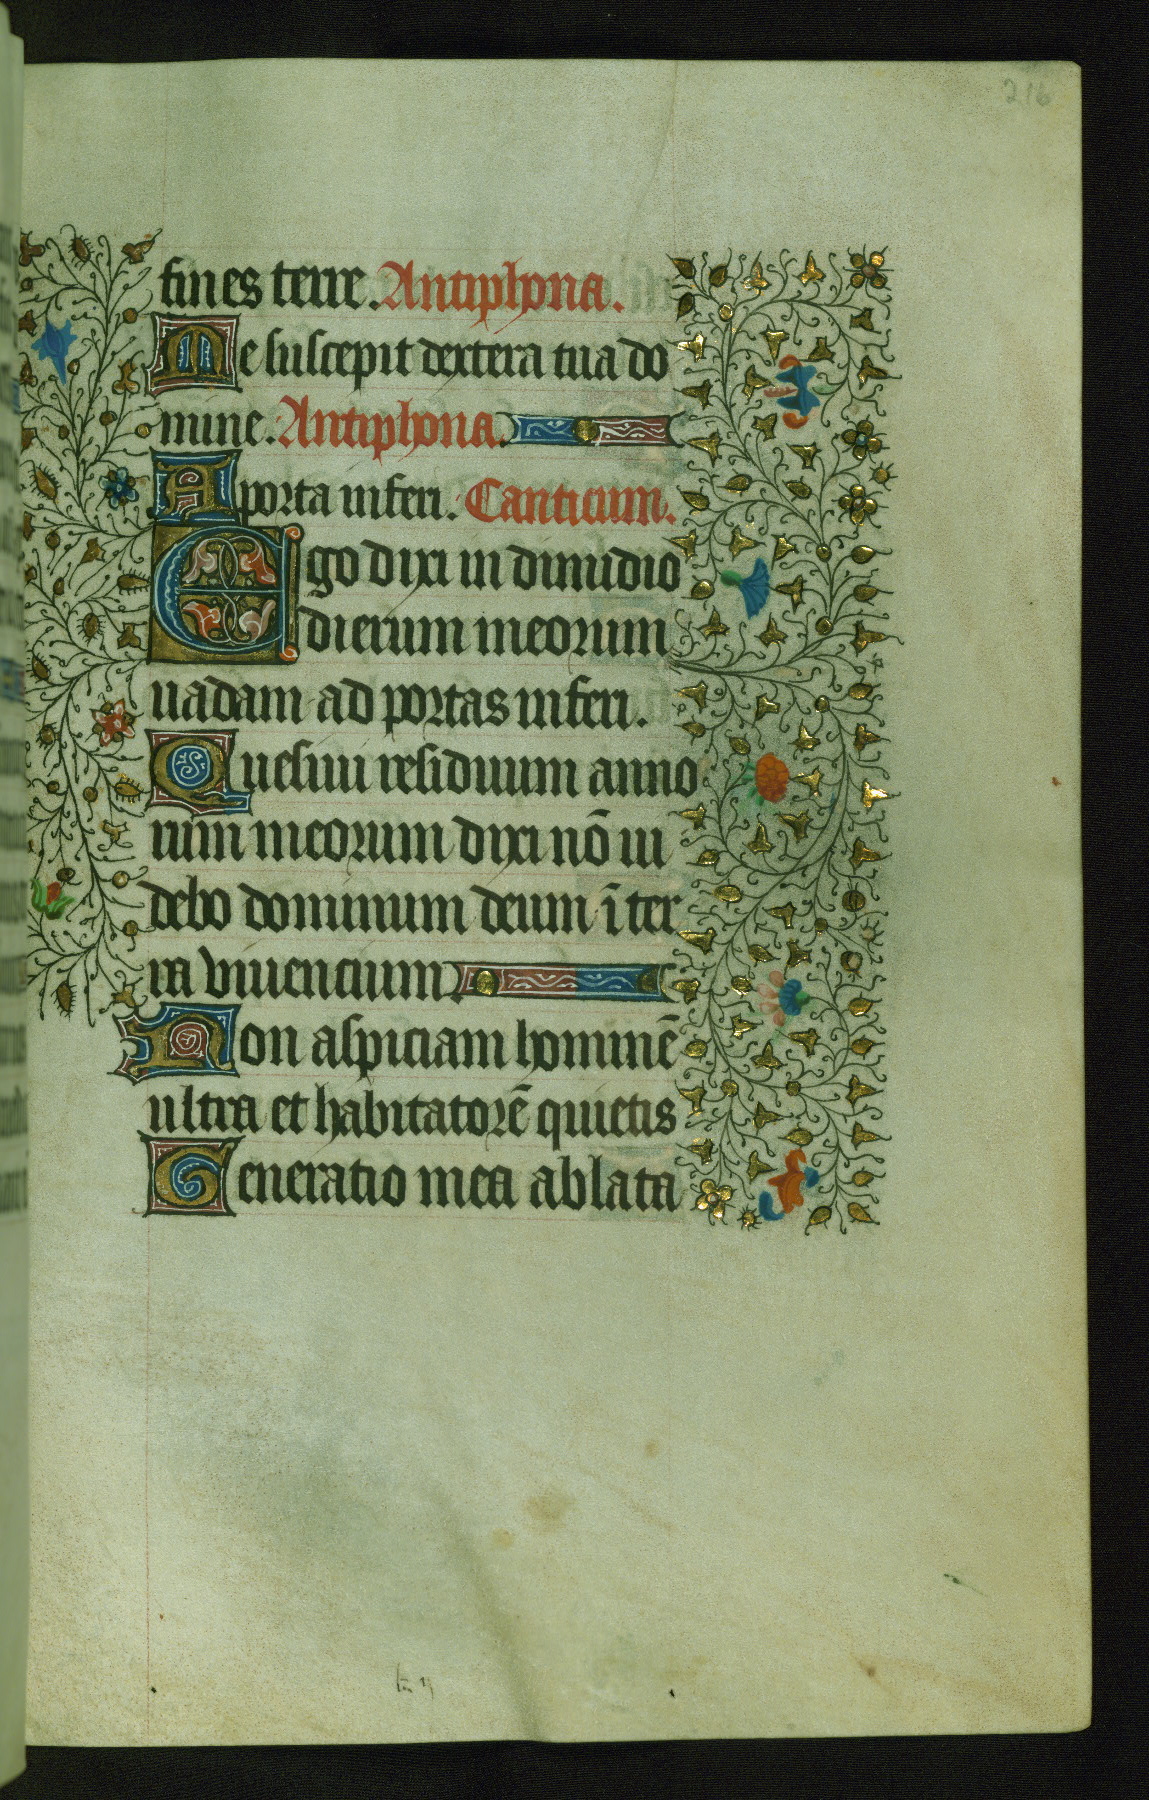 216
fines terre. Antiphona.
Me suscepit dextera tua do
mine. Antiphona.
A porta inferi. Canticum.
Ego dixi in dimidio
dierum meorum
uadam ad portas inferi.
Quesiui residuum anno
rum meorum dixi nō ui
debo dominum deum ī ter
ra viuencium
Non aspiciam hominē
ultra et habitatorē quietis
Generatio mea ablata